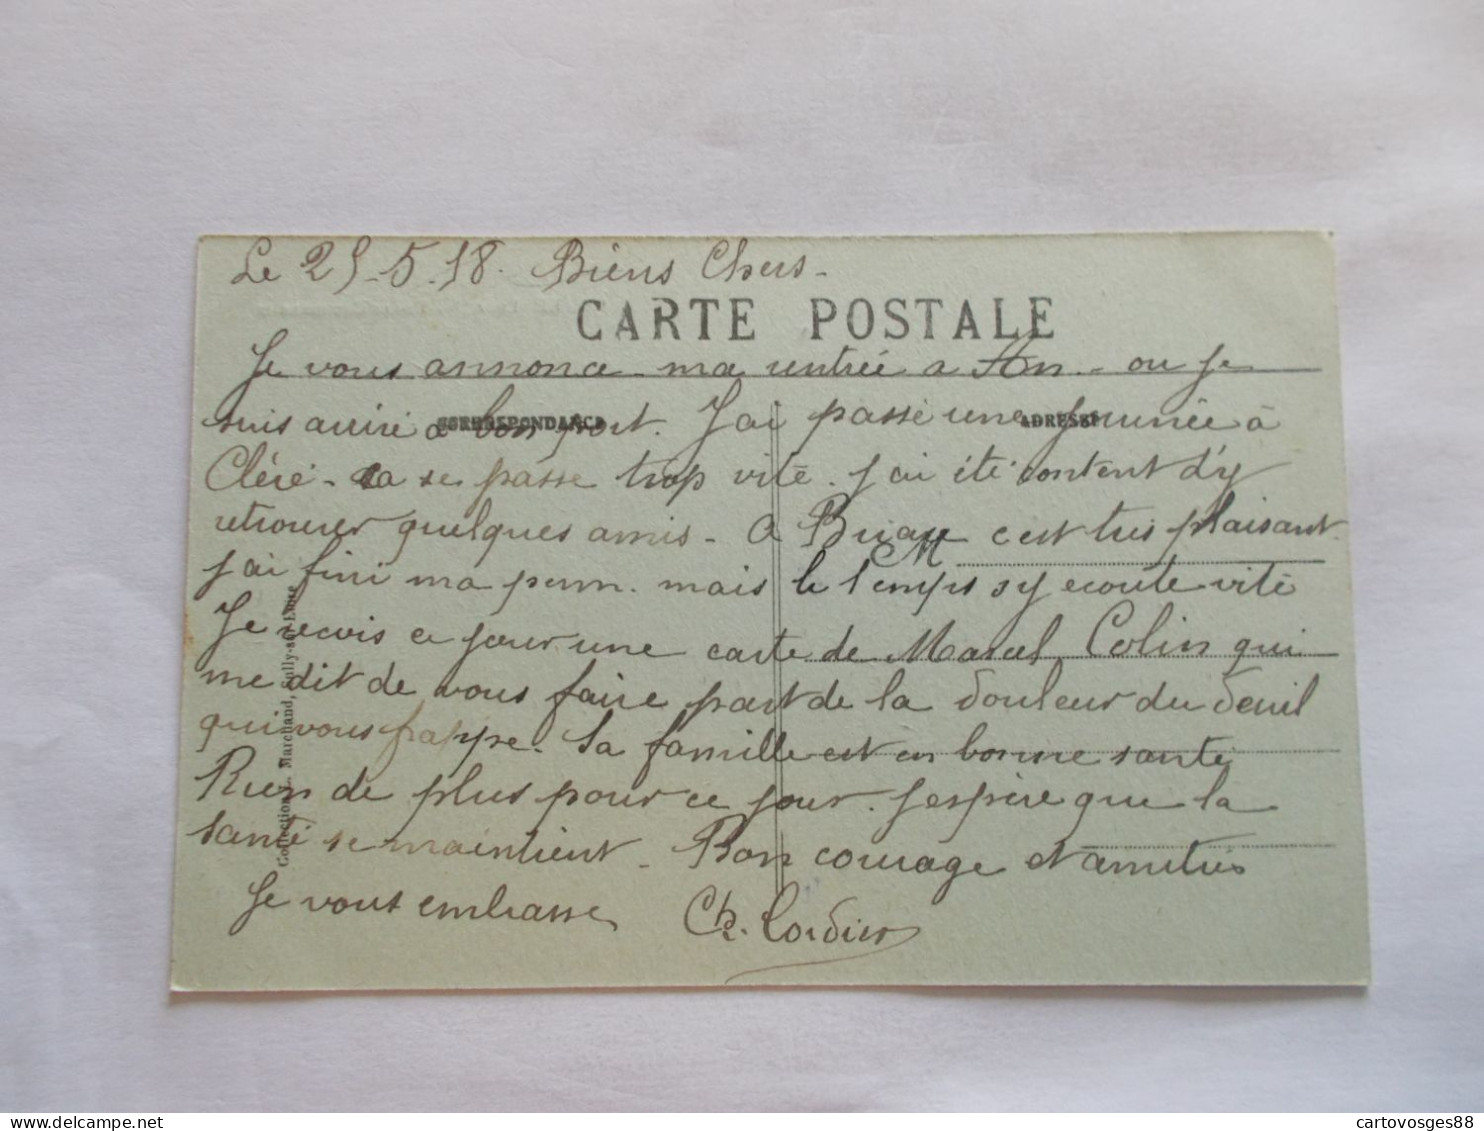 Le 25-5-18. Biens Chers -
CARTE POSTALE
Je vous annonce ma rentrée a où je
CORRESPONDANCE
ADRESSE
suis arrivé à bon port. J'ai passé une journée à
Cléré - ca se passe trop vite. j'ai été content d'y
retrouver quelques amis - a c'est très plaisant.
M
j'ai fini ma perm. mais le temps s'y ecoute vite
Je recois ce jour une carte de Marcel Colin qui
me dit de vous faire part de la douleur du deuil
qui vous frappe. Sa famille est en bonne santé
Rien de plus pour ce jour. J'espère que la
santé se maintient - Bon courage et amitiés
Je vous embrasse Ch. Cordier
Collection L. Marchand, Sully-sur-Loire
cartovosges88